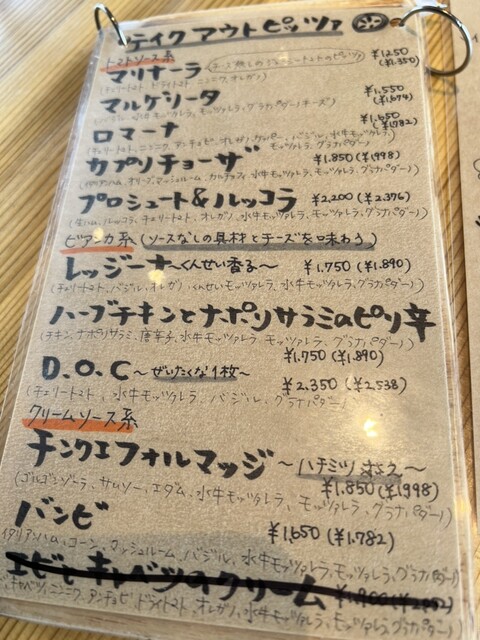 テイクアウトピッツァ
トマトソース系
マリナーラ (チーズ無しのシンプルトマトのピッツァ) ¥1250 (¥1.350)
(チェリートマト、ドライトマト、ニンニク、オレガノ)
マルゲリータ ¥1,550 (¥1.674)
(バジル、水牛モッツァレラ、モッツァレラ、グラナパダーノチーズ)
ロマーナ ¥1,650 (¥1,782)
(チェリートマト、ニンニク、アンチョビ、オレガノ、ケッパー、バジル、水牛モッツァレラ、モッツァレラ、グラナパダーノ)
カプリチョーザ ¥1.850 (¥1,998)
(イタリアハム、オリーブ、マッシュルーム、カルチョフィ、水牛モッツァレラ、モッツァレラ、グラナパダーノ)
プロシュート&ルッコラ ¥2,200 (¥2,376)
(生ハム、ルッコラ、チェリートマト、オレガノ、水牛モッツァレラ、モッツァレラ、グラナパダーノ)
ビアンカ系 (ソースなしの具材とチーズを味わう)
レッジーナ〜くんせい香る〜 ¥1.750 (¥1.890)
(チェリートマト、バジル、オレガノ、くんせいモッツァレラ、水牛モッツァレラ、グラナパダーノ)
ハーブチキンとナポリサラミのピリ辛
(チキン、ナポリサラミ、唐辛子、水牛モッツァレラ、モッツァレラ、グラナパダーノ)
¥1.750 (¥1.890)
D.O.C〜ぜいたくな1枚〜 ¥2.350 (¥2,538)
(チェリートマト、水牛モッツァレラ、バジル、グラナパダーノ)
クリームソース系
チンクエフォルマッジ 〜ハチミツ添え〜
(ゴルゴンゾーラ、サムソー、エダム、水牛モッツァレラ、モッツァレラ、グラナパダーノ)
¥1.850 (¥1998)
バンビ ¥1,650 (¥1.782)
イタリアンハム、コーン、マッシュルーム、バジル、水牛モッツァレラ、モッツァレラ、グラナパダーノ)
エビとキャベツのクリーム ¥1.900 (¥2,052)
キャベツ、ニンニク、アンチョビ、ドライトマト、オレガノ、水牛モッツァレラ、モッツァレラ、グラナパダーノ)